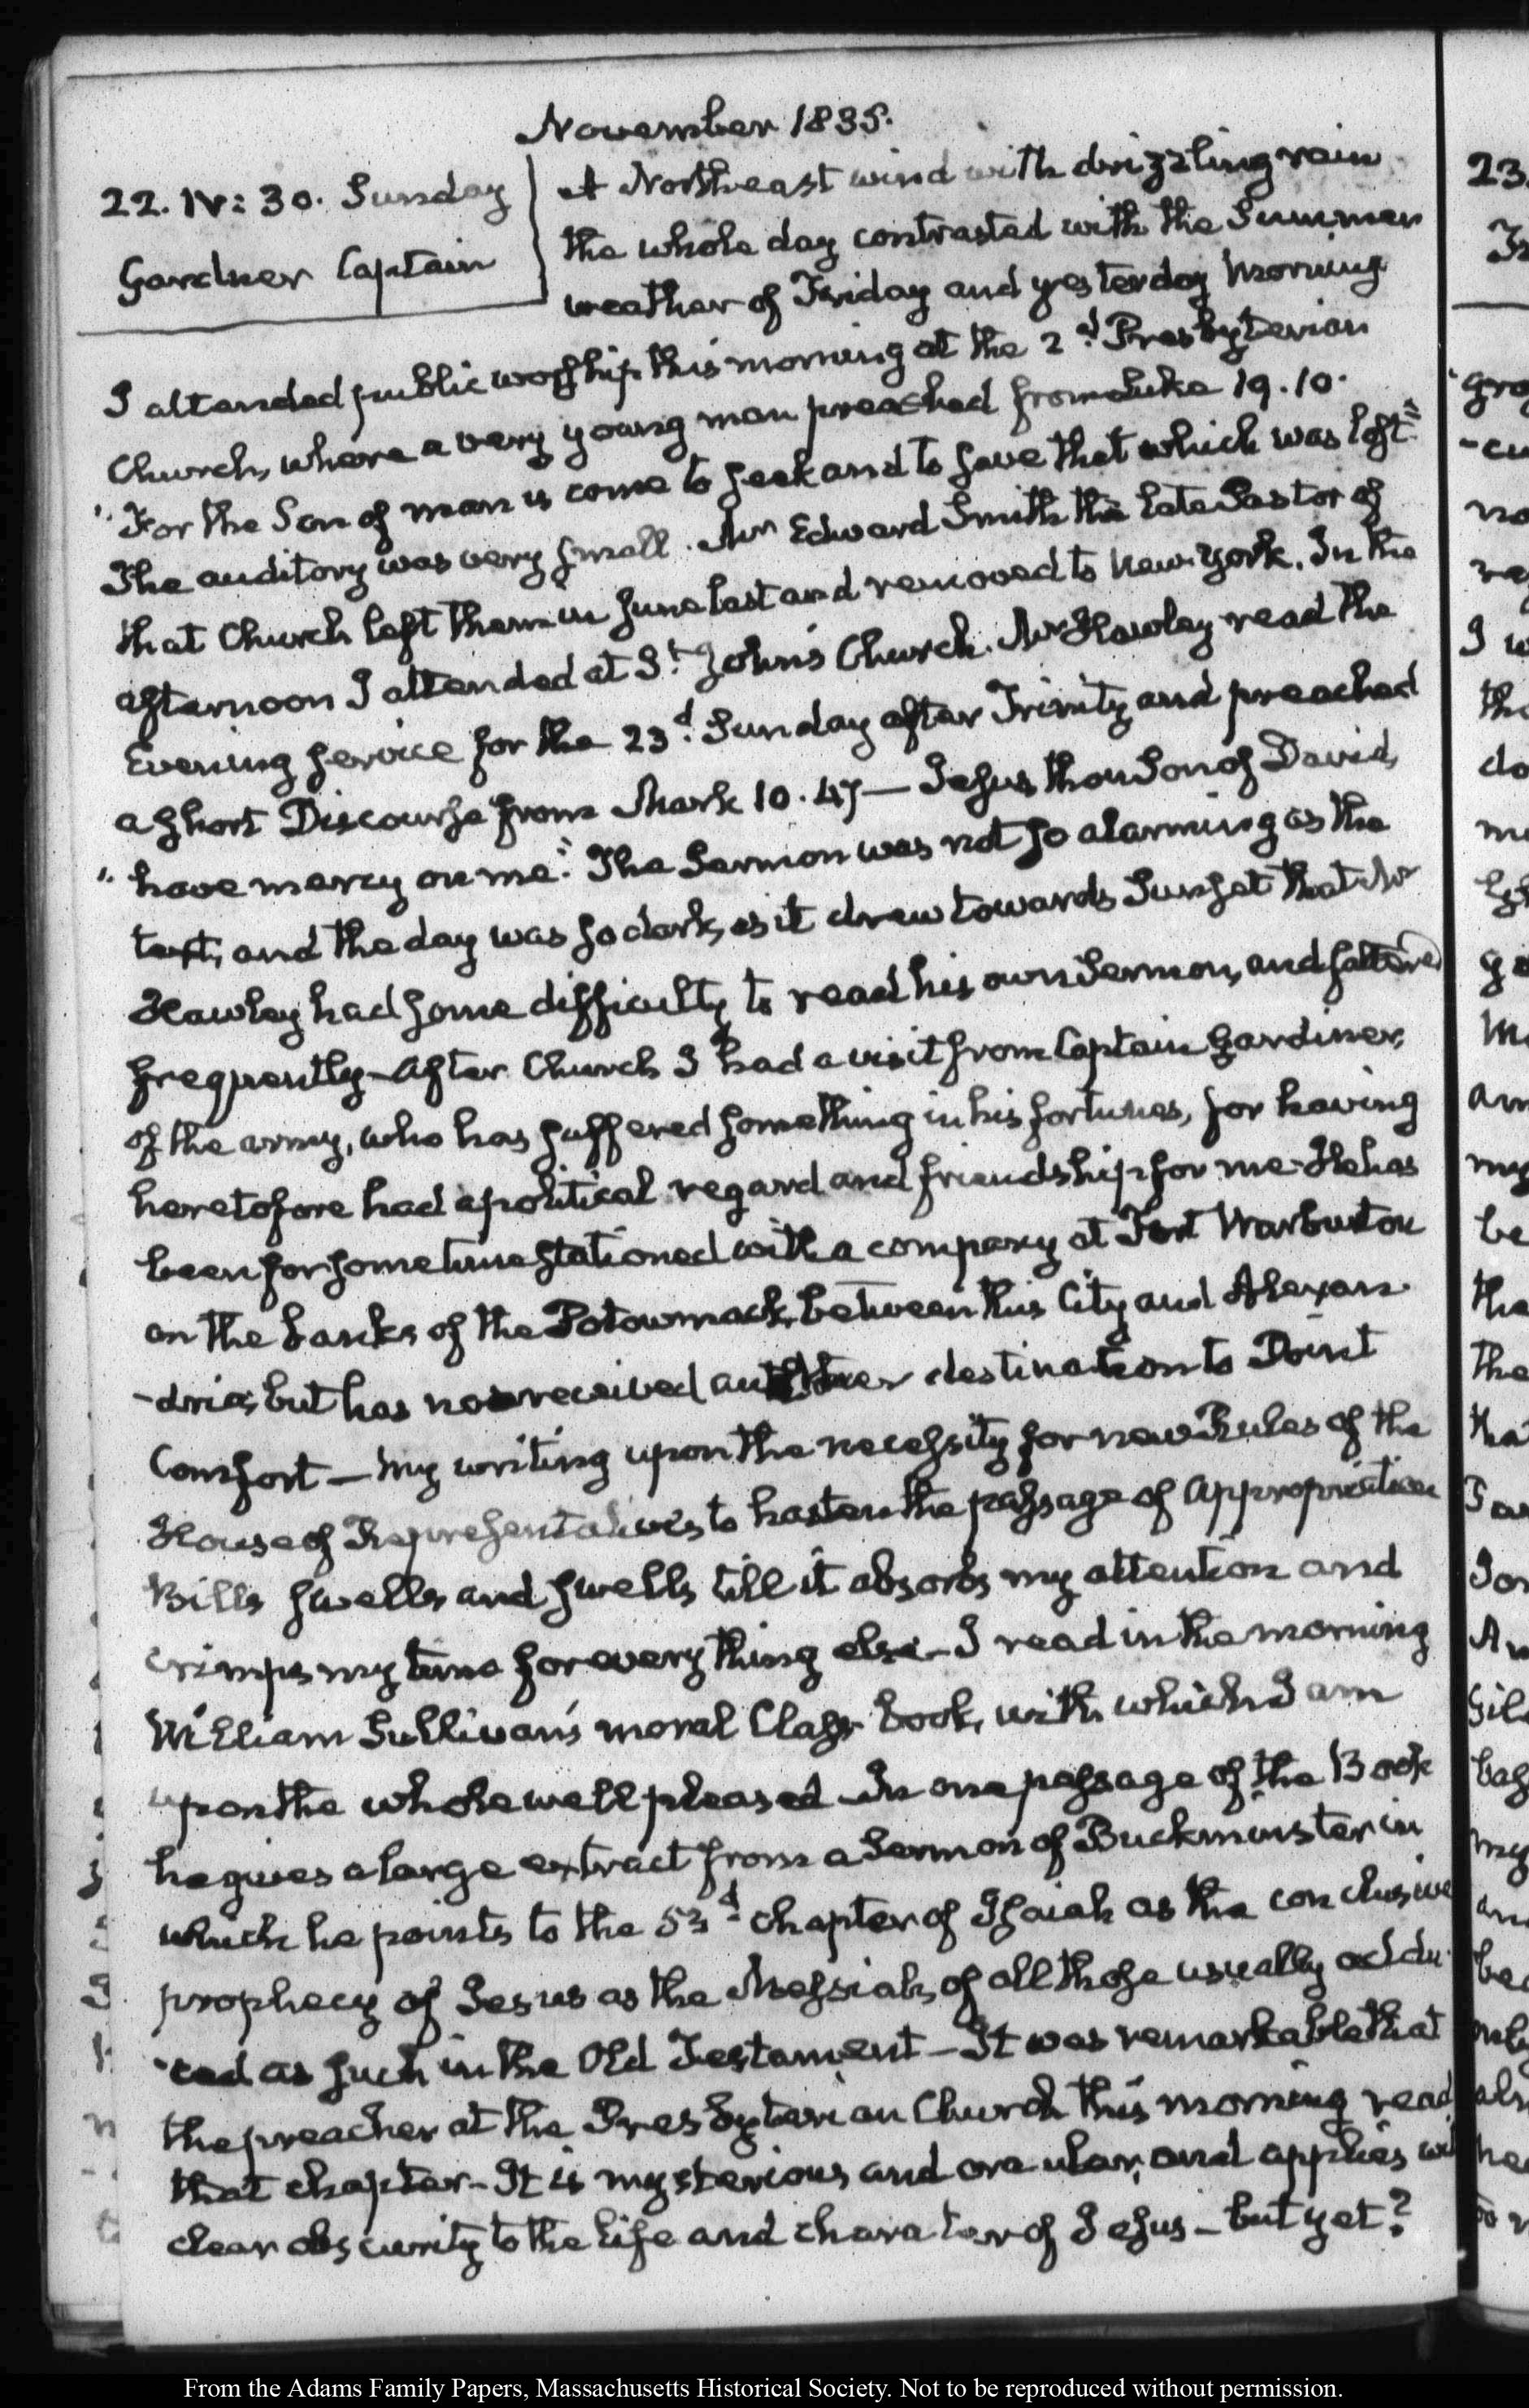 November 1835.
22. IV: 30. Sunday
Gardner Captain
A Northeast wind with drizzling rain
the whole day contrasted with the Summer
weather of Friday and yesterday Morning
I attended public worship this morning at the 2d. Presbyterian
Church, where a very young man preached from Luke 19.10.
"For the Son of man is come to seek and to save that which was lost."
The auditory was very small. Mr Edward Smith the late Pastor of
that Church left them in June last and removed to New-York. In the
afternoon I attended at St. John's Church. Mr Hawley read the
Evening service for the 23d. Sunday after Trinity and preached
a short Discourse from Mark 10.47 — Jesus thou Son of David,
"have mercy on me." The Sermon was not so alarming as the
text, and the day was so dark, as it drew towards Sunset that Mr
Hawley had some difficulty to read his own Sermon, and faltered
frequently — After Church I had a visit from Captain Gardiner,
of the army, who has suffered something in his fortunes, for having
heretofore had a political regard and friendship for me. He has
been for some time stationed with a company at Fort Warburton
on the banks of the Potowmack, between this City and Alexan-
-dria, but has now received another destination to Point
Comfort — My writing upon the necessity for new Rules of the
House of Representatives to hasten the passage of appropriation
Bills swells and swells till it absorbs my attention and
crimps my time for every thing else — I read in the morning
William Sullivan's moral Class book, with which I am
upon the whole well pleased — In one passage of the Book
he gives a large extract from a Sermon of Buckminster in
which he points to the 53d. chapter of Isaiah as the conclusive
prophecy of Jesus as the Messiah, of all those usually addu-
-ced as such in the Old Testament — It was remarkable that
the preacher at the Presbyterian Church this morning read
that chapter — It is mysterious and oracular, and applies with
clear obscurity to the life and character of Jesus — but yet?
From the Adams Family Papers, Massachusetts Historical Society. Not to be reproduced without permission.